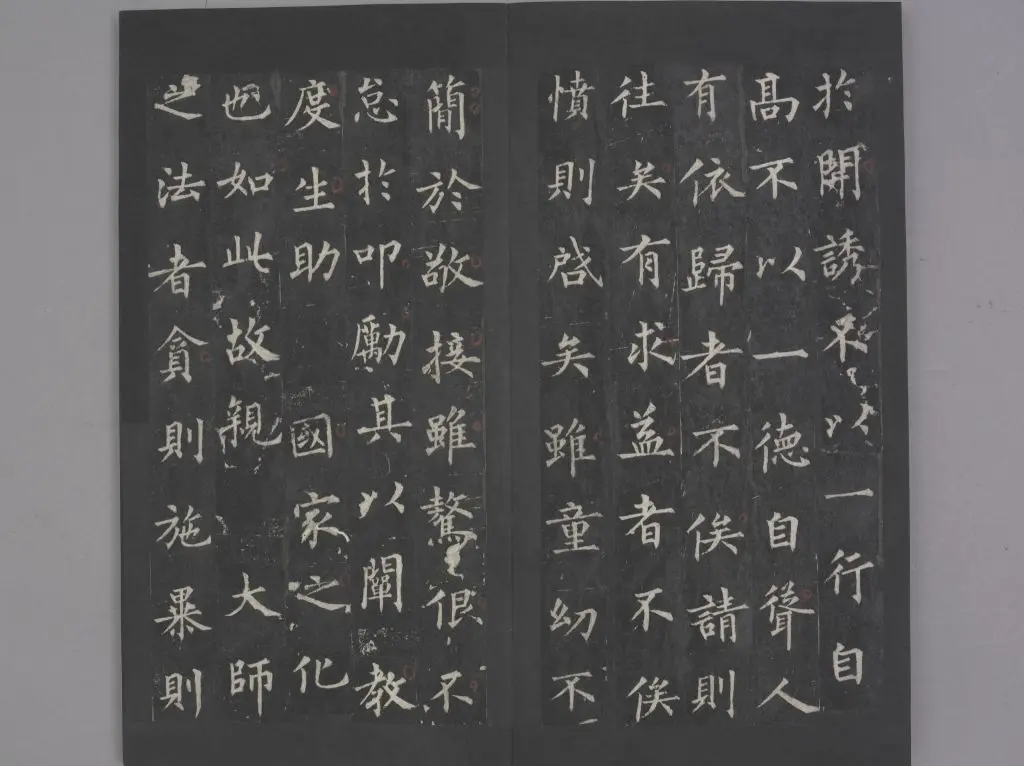 於開誘不以一行自
高不以一德自聳人
有依歸者不俟請則
往矣有求益者不俟
憤則啓矣雖童幼不
簡於敬接雖驁佷不
怠於叩勵其以闡教
度生助國家之化
也如此故親大師
之法者貪則施暴則